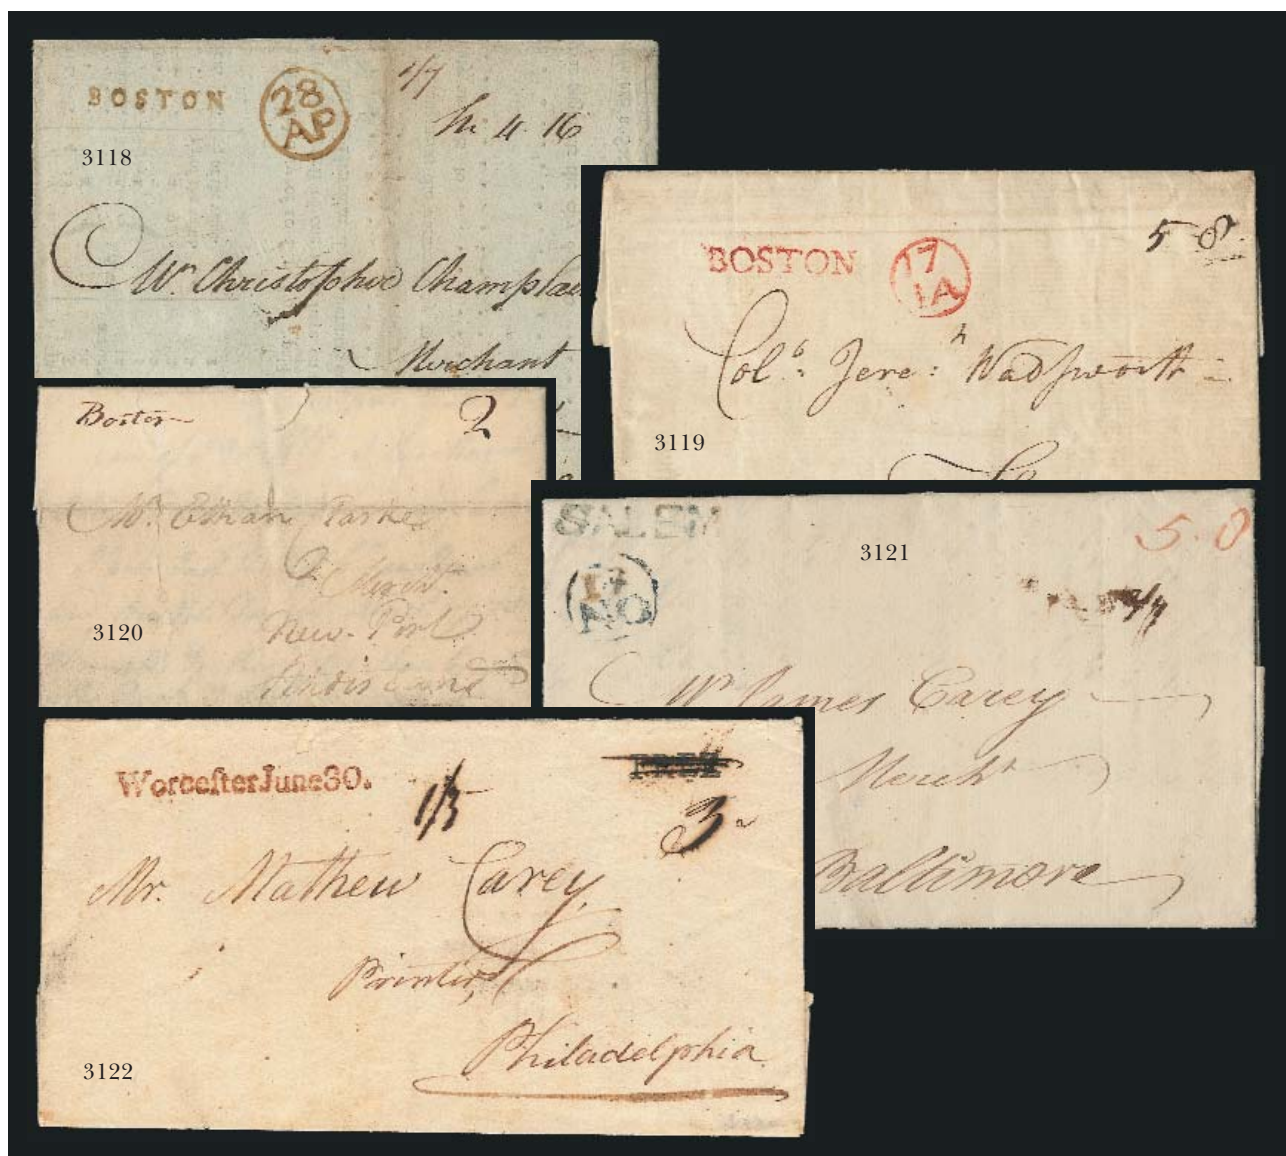 BOSTON 28 AP 1/7
4 16
3118
Mr. Christopher Champlai
Merchant
BOSTON 17 IA 5 8
Col.o Jere:h Wadſworth
3119
To
Boston 2
Mr. Ethan
Mercht.
New-Port
3120
SALEM 5.0
3121
14 NO
Mr James Carey
Mercht
Baltimore
WorceſterJune30. FREE
1/3 3
Mr. Mathew Carey,
Printer,
Philadelphia
3122